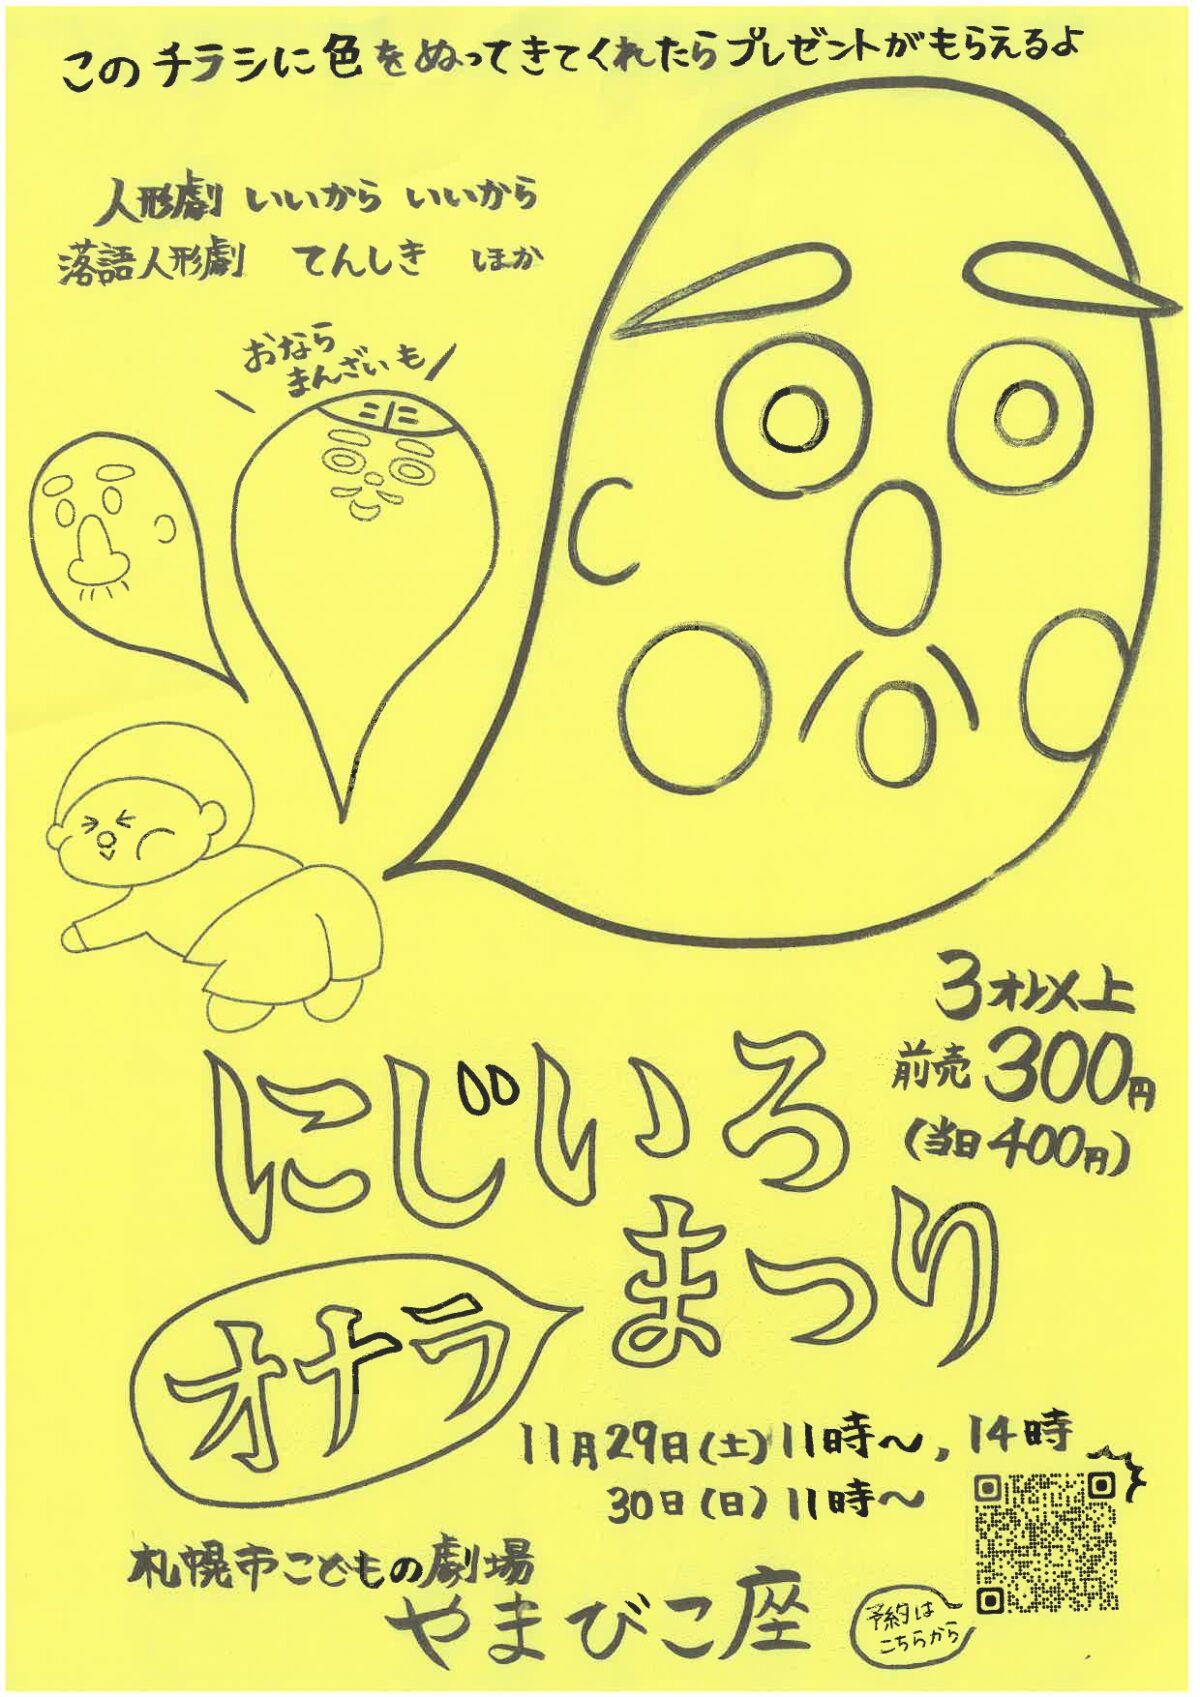 このチラシに色をぬってきてくれたらプレゼントがもらえるよ
人形劇 いいから いいから
落語人形劇 てんしき ほか
おなら
まんざいも
3才以上
前売300円
(当日400円)
にじいろ
オナラ
まつり
11月29日(土)11時～,14時
30日(日)11時～
札幌市こどもの劇場
やまびこ座
予約は
こちらから